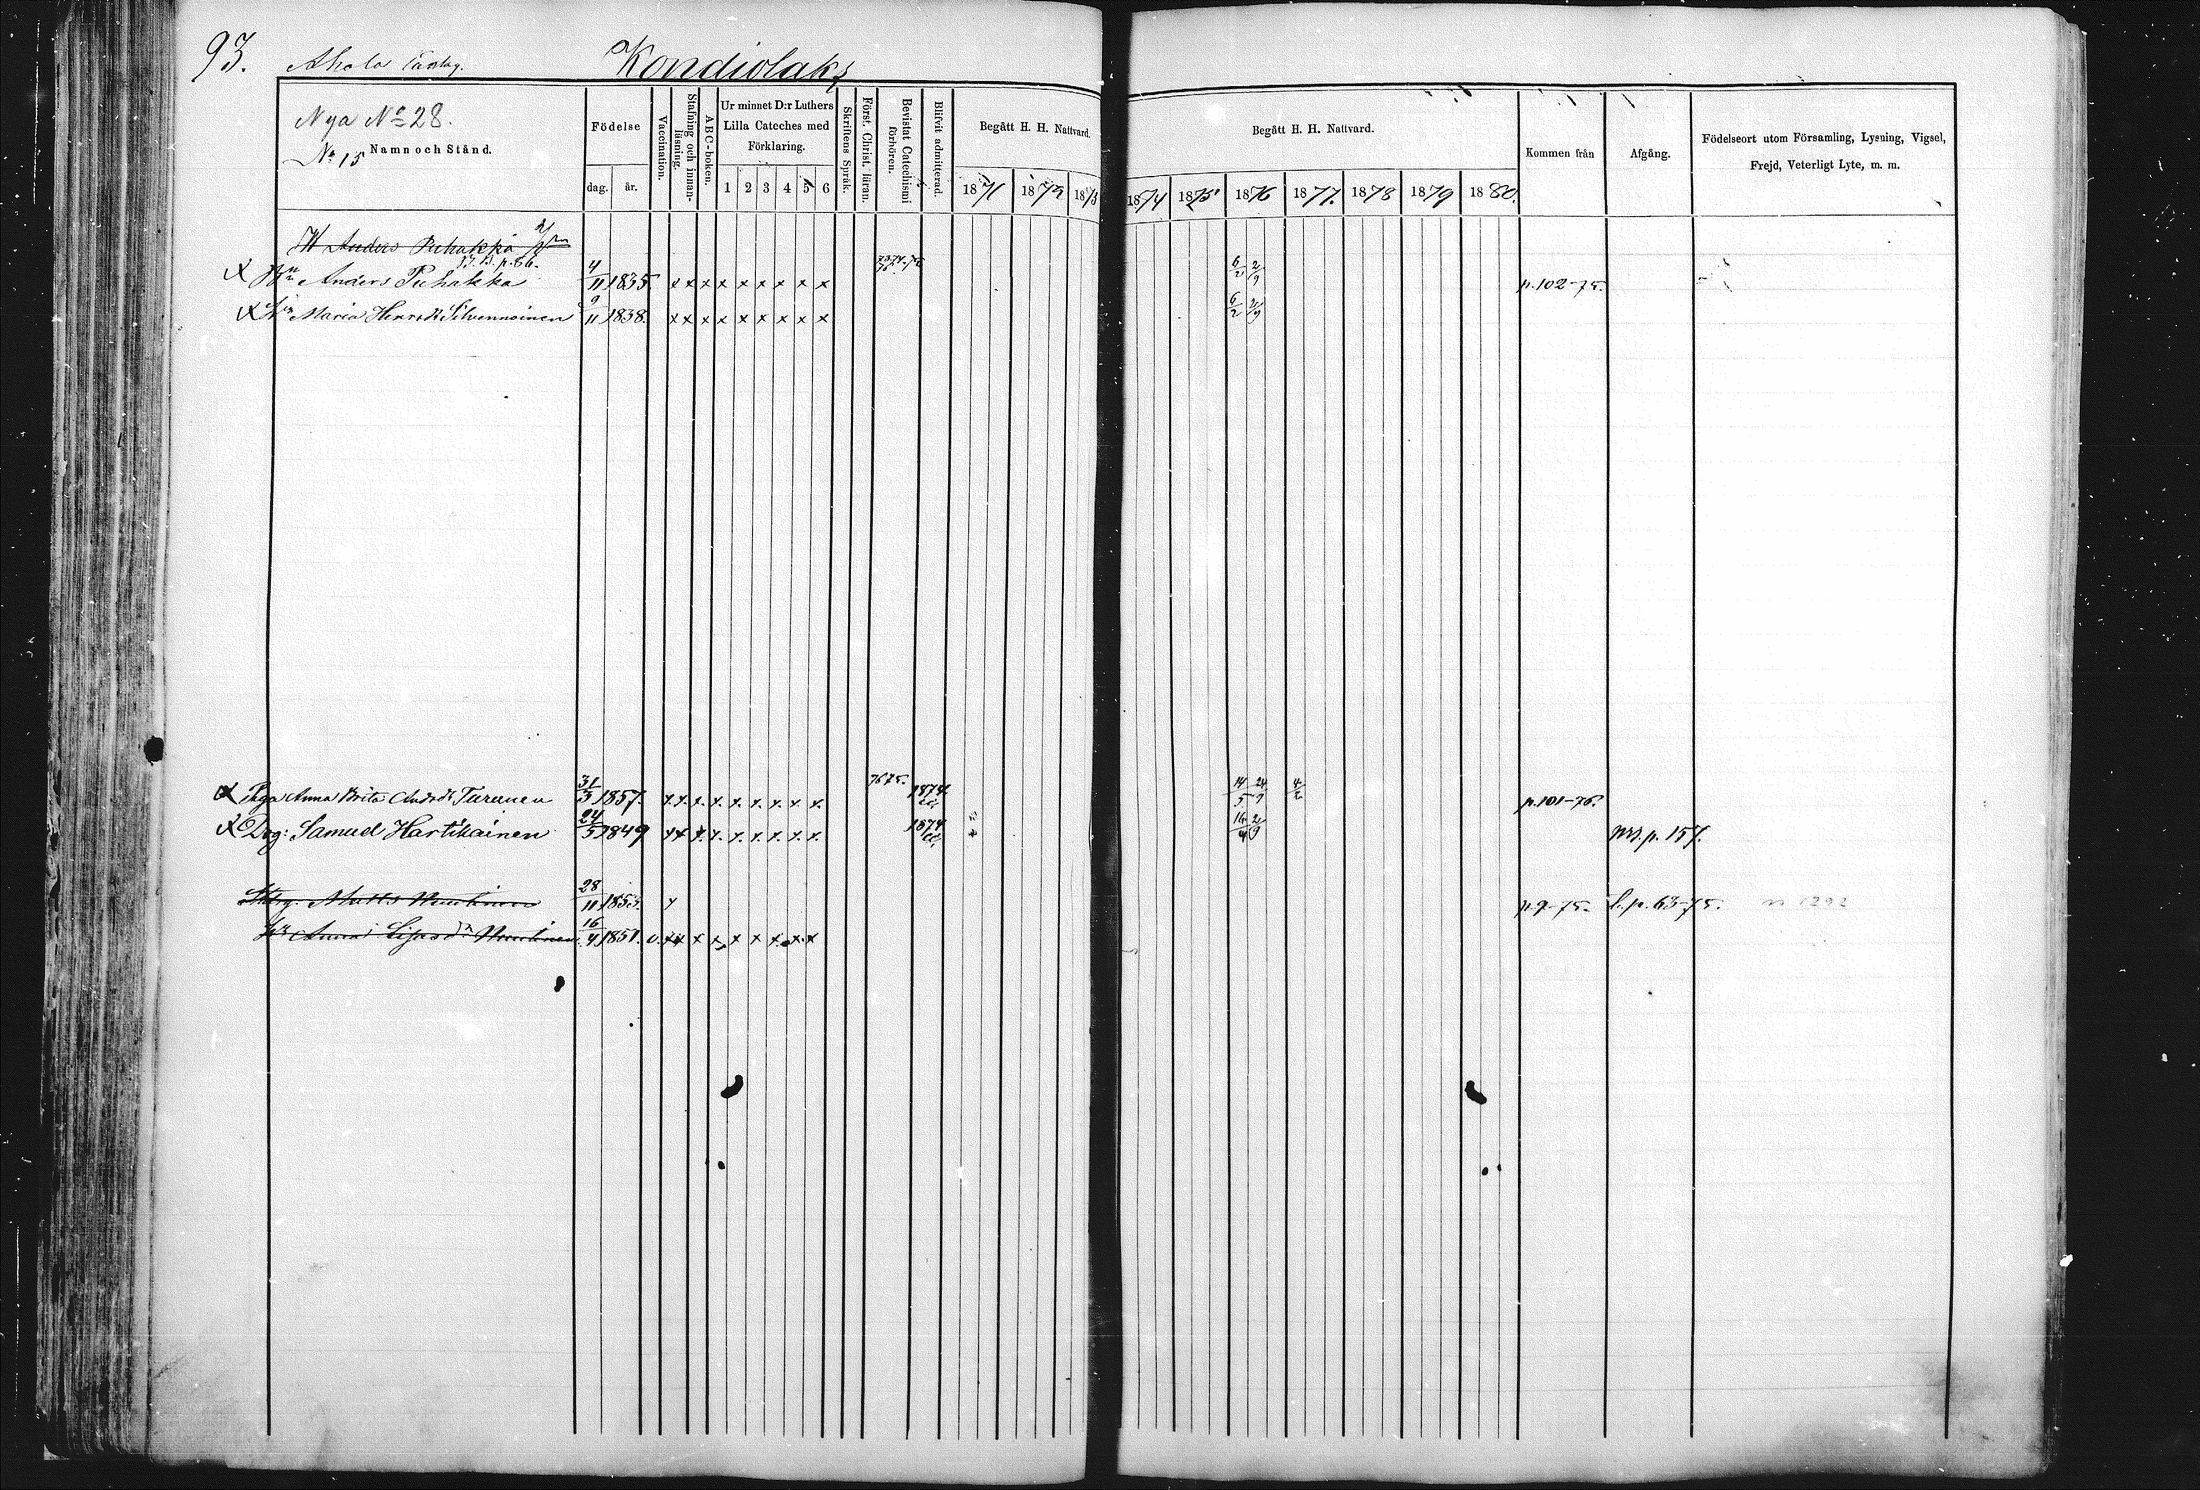 93. Ahola Kondiolaks
Nya No 28.
No 15 Namn och Stånd.
Födelse
dag. år.
Vaccination.
Stafning och innan-läsning.
ABC-boken.
Ur minnet D:r Luthers Lilla Cateches med Förklaring.
1 2 3 4 5 6
Skriftens Språk.
Först. Christ. läran.
Bevistat Catechismi förhören.
Blifvit admitterad.
Begått H. H. Nattvard.
1871 1872 1873
Begått H. H. Nattvard.
1874 1875 1876 1877. 1878 1879 1880.
Kommen från
Afgång.
Födelseort utom Församling, Lysning, Vigsel, Frejd, Veterligt Lyte, m. m.
Anders Puhakka
p. 66.
X Anders Puhakka 4/11 1835. x x x x x x x x x 6/2 2/9 p. 102-75.
X Maria Henr.dr Silvennoinen 9/11 1838. x x x x x x x x x 6/2 2/9
X Piga Anna Brita And.dr Turunen 31/3 1857. x x x x x x x x x 7675. 1874. 14/5 24/9 4/2 p. 101-76.
X Drg: Samuel Hartikainen 24/5 1849 x x x x x x x x x 1874 16/4 2/9 p. 157.
Matts 28/11 1853. p. 9-75. p. 63-75.
Anna 16/4 1851. v. x x x x x x x x x